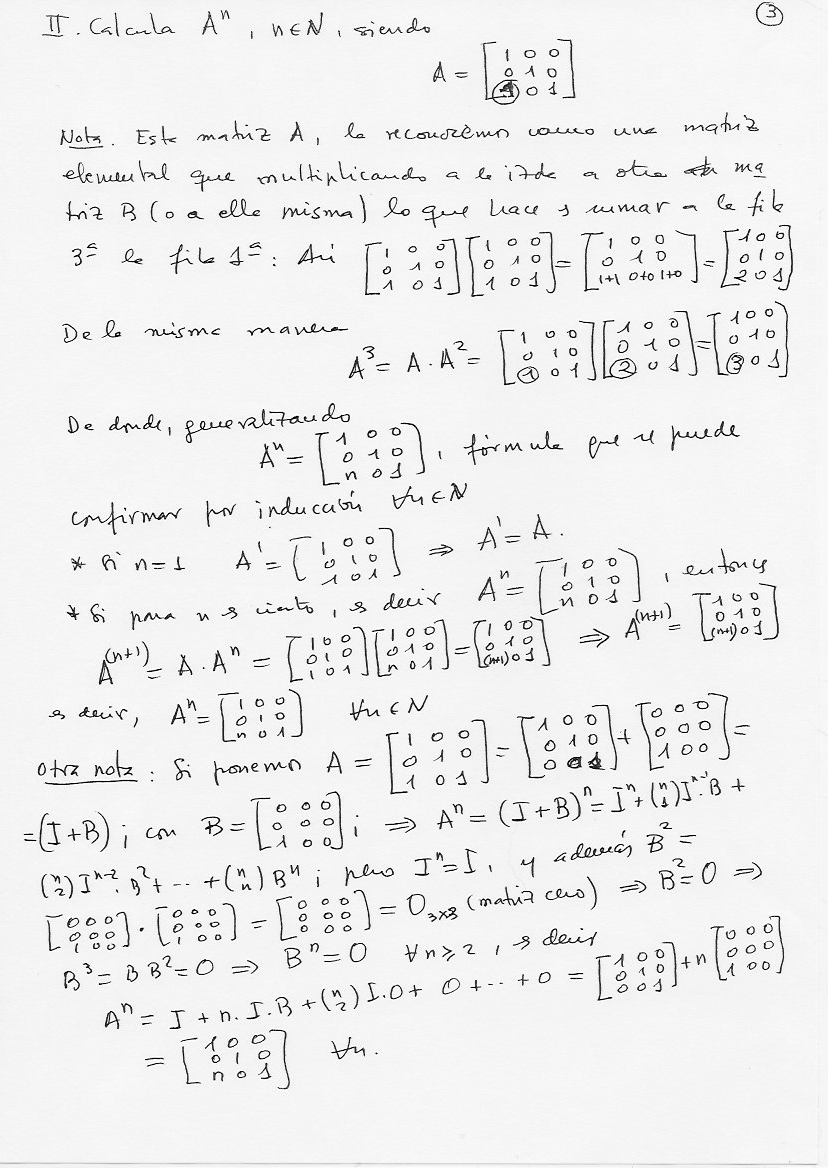 ③
II. Calcula Aⁿ, n∈N, siendo
A = [1 0 0; 0 1 0; 1 0 1]
Nota. Esta matriz A, la reconocemos como una matriz
elemental que multiplicando a la izda a otra ma
triz B (o a ella misma) lo que hace es sumar a la fila
3ª la fila 1ª: Así [1 0 0; 0 1 0; 1 0 1] [1 0 0; 0 1 0; 1 0 1] = [1 0 0; 0 1 0; 1+1 0+0 1+0] = [1 0 0; 0 1 0; 2 0 1]
De la misma manera
A³ = A · A² = [1 0 0; 0 1 0; 1 0 1] [1 0 0; 0 1 0; 2 0 1] = [1 0 0; 0 1 0; 3 0 1]
De donde, generalizando
Aⁿ = [1 0 0; 0 1 0; n 0 1], fórmula que se puede
confirmar por inducción ∀n∈N
* Si n=1 A¹ = [1 0 0; 0 1 0; 1 0 1] ⇒ A¹ = A.
* Si para n es cierto, es decir Aⁿ = [1 0 0; 0 1 0; n 0 1], entonces
A⁽ⁿ⁺¹⁾ = A · Aⁿ = [1 0 0; 0 1 0; 1 0 1] [1 0 0; 0 1 0; n 0 1] = [1 0 0; 0 1 0; (n+1) 0 1] ⇒ A⁽ⁿ⁺¹⁾ = [1 0 0; 0 1 0; (n+1) 0 1]
es decir, Aⁿ = [1 0 0; 0 1 0; n 0 1] ∀n∈N
Otra nota: Si ponemos A = [1 0 0; 0 1 0; 1 0 1] = [1 0 0; 0 1 0; 0 0 1] + [0 0 0; 0 0 0; 1 0 0] =
= (I+B); con B = [0 0 0; 0 0 0; 1 0 0]; ⇒ Aⁿ = (I+B)ⁿ = Iⁿ + (n 1) Iⁿ⁻¹·B +
(n 2) Iⁿ⁻²·B² + ··· + (n n) Bⁿ; pero Iⁿ = I, y además B² =
[0 0 0; 0 0 0; 1 0 0] · [0 0 0; 0 0 0; 1 0 0] = [0 0 0; 0 0 0; 0 0 0] = O₃ₓ₃ (matriz cero) ⇒ B² = O ⇒
B³ = B B² = O ⇒ Bⁿ = O ∀n≥2, es decir
Aⁿ = I + n·I·B + (n 2) I·O + O + ··· + O = [1 0 0; 0 1 0; 0 0 1] + n [0 0 0; 0 0 0; 1 0 0]
= [1 0 0; 0 1 0; n 0 1] ∀n.